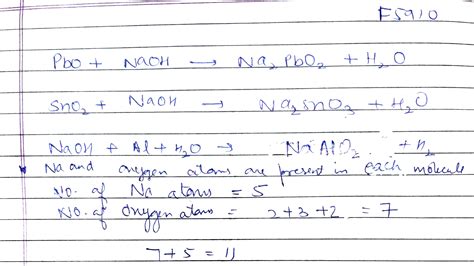 F5910
PbO + NaOH → Na₂PbO₂ + H₂O
SnO₂ + NaOH → Na₂SnO₃ + H₂O
NaOH + Al + H₂O → NaAlO₂ + H₂
Na and oxygen atoms are present in each molecule
No. of Na atoms = 5
No. of oxygen atoms = 2+3+2 = 7
7+5 = 11